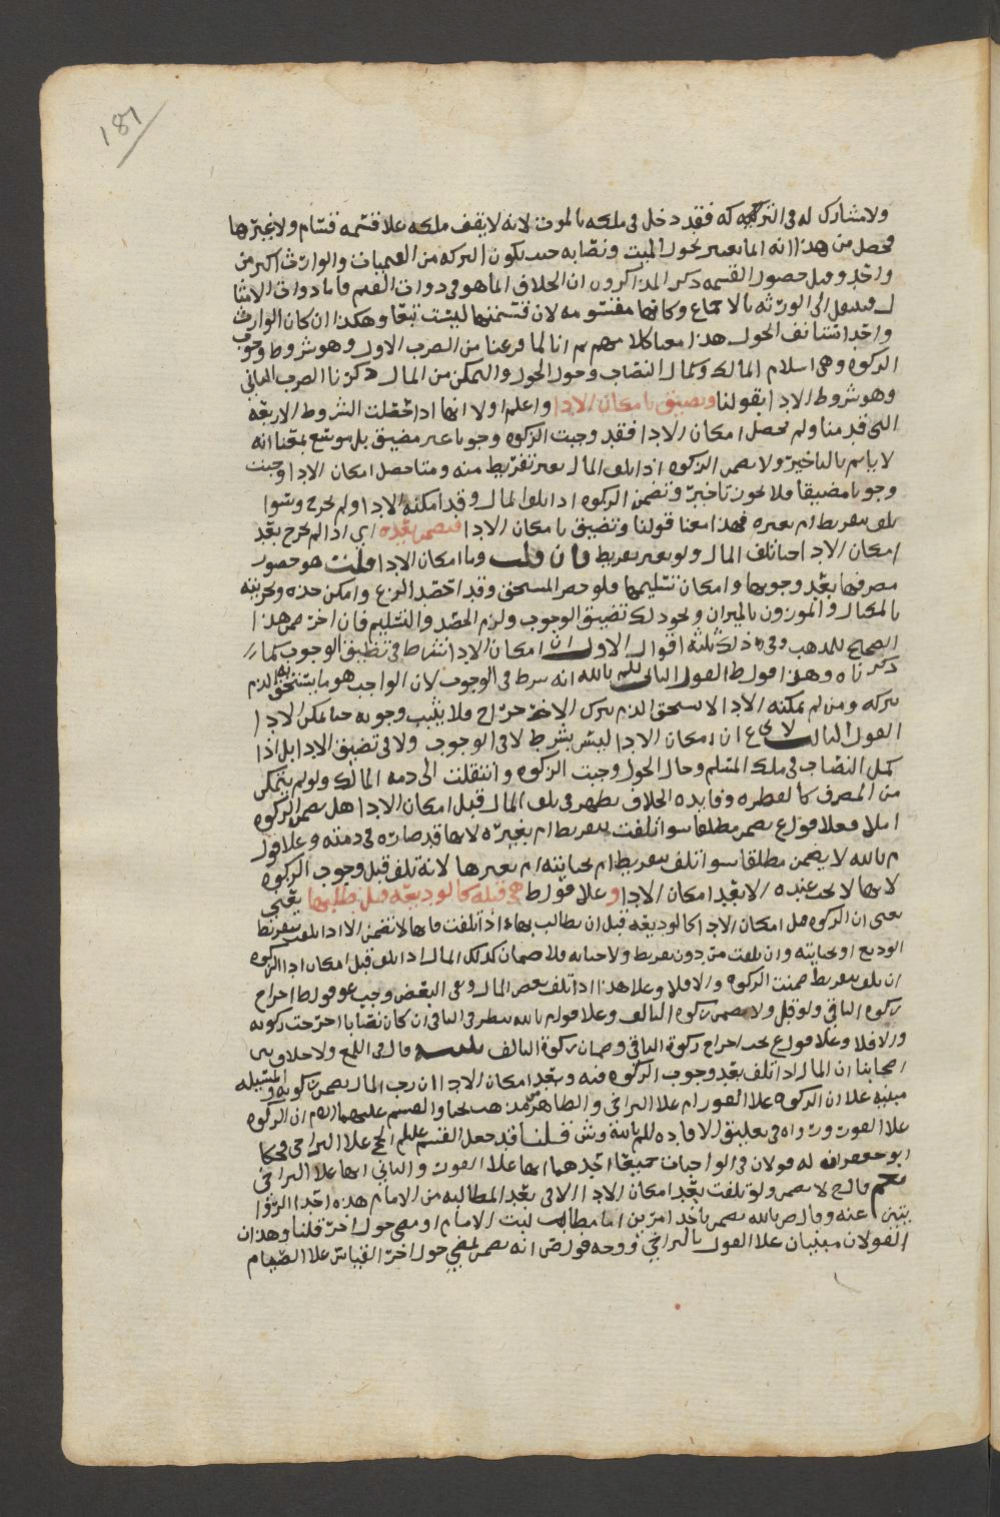 ١٨٧
ولا مشارك له في التركه فقد دخل في ملكه بالموت لانه لا يقف ملكه علا قسمه قسام ولا غيرها
فحصل من هذا انه انما يعتبر بحول الميت ونصابه حيث يكون التركه من القيميات والوارث اكثر من
واحد وقبل حصول القسمه ذكر المذاكرون ان الخلاف انما هو في ذوات القيم فاما ذوات الامثا
ل فينتقل الى الورثه بالاجماع وكانها مقسومه لان قسمتها ليست بيعا وهكذا ان كان الوارث
واحدا استانف الحول هذا معنا كلامهم ثم انا لما فرغنا من الضرب الاول وهو شروط وجوب
الزكوه وهي اسلام المالك وكمال النصاب وحول الحول والتمكن من المال ذكرنا الضرب الثاني
وهو شروط الادا بقولنا وتضيق بامكان الادا واعلم اولا انها اذا حصلت الشروط الاربعه
التي قدمنا ولم يحصل امكان الادا فقد وجبت الزكوه وجوبا غير مضيق بل موسع بمعنا انه
لا ياثم بالتاخير ولا يضمن الزكوه اذا تلف المال بغير تفريط منه ومتا حصل امكان الادا وجبت
وجوبا مضيقا فلا يجوز تاخير وتضمن الزكوه اذا تلف المال وقد امكنه الادا ولم يخرج وسوا
تلف بتفريط ام بغيره فهذا معنا قولنا وتضيق بامكان الادا فيضمن بعده اي اذا لم يخرج بعد
امكان الادا حتا تلف المال ولو بغير تفريط فان قلت وما امكان الادا قلت هو حضور
مصرفها بعد وجوبها وامكان تسليمها فلو حضر المستحق وقد احصد الزرع وامكن جذه وتجزيته
بالمكيال والموزون بالميزان ونحو ذلك تضيق الوجوب ولزم الحصد والتسليم فان اخر ضمن هذا
الصحيح للمذهب وفي ذلك ثلثه اقوال الاول ان امكان الادا شرط في تضيق الوجوب كما
ذكرناه وهذا قول ط القول الثاني للم بالله انه شرط في الوجوب لان الواجب هو ما يستحق الذم
بتركه ومن لم يمكنه الادا لا يستحق الذم بترك الاخراج فلا يثبت وجوبه حتا يمكن الادا
القول الثالث لا ع ان امكان الادا ليس بشرط لا في الوجوب ولا في تضيق الادا بل اذا
كمل النصاب في ملك المسلم وحال الحول وجبت الزكوه وانتقلت الى ذمه المالك ولو لم يتمكن
من المصرف كالفطره وفايده الخلاف تظهر في تلف المال قبل امكان الادا هل يضمن الزكوه
ام لا فعلا قول ع يضمن مطلقا سوا تلفت بتفريط ام بغيره لانها قد صارت في ذمته وعلا قول
م بالله لا يضمن مطلقا سوا تلف بتفريط ام بجنايته ام بغيرها لانه تلف قبل وجوب الزكوه
لانها لا تجب عنده الا بعد امكان الادا وعلا قول ط هي قبله كالوديعه قبل طلبها يعني
يعني ان الزكوه قبل امكان الادا كالوديعه قبل ان يطالب بها اذا تلفت فانها لا تضمن الا اذا تلفت بتفريط
الوديع او بجنايته وان تلفت من دون تفريط ولا جنايه فلا ضمان كذلك المال اذا تلف قبل امكان ادا الزكوه
ان تلف بتفريط ضمنت الزكوه والا فلا وعلا هذا اذا تلف بعض المال وبقي البعض وجب علا قول ط اخراج
زكوه الباقي ولو قل ولا يضمن زكوه التالف وعلا قول م بالله ينظر في الباقي ان كان نصابا اخرجت زكوته
والا فلا وعلا قول ع يجب اخراج زكوة الباقي وضمان زكوة التالف تنبيه قال في اللمع ولا خلاف بين
اصحابنا ان المال اذا تلف بعد وجوب الزكوه فيه وبعد امكان الادا ان رب المال يضمن زكوته والمسئله
مبنيه علا ان الزكوه علا الفور ام علا التراخي والظاهر من مذهب يحيا والقسم عليهما السلام ان الزكوه
علا الفور ورواه في تعليق الافاده للم بالله وش قلنا قد جعل القسم عليلم الحج علا التراخي فحكا
ابو جعفر انه له قولان في الواجبات جميعا احدهما انها علا الفور والثاني انها علا التراخي
نعم وقال ح لا يضمن ولو تلفت بعد امكان الادا الا في بعد المطالبه من الامام هذه احدا الروا
يتين عنه وقال ص بالله يضمن باحد امرين اما بطالب لبيت الامام او مضي حول اخر قلنا وهذان
القولان مبنيان علا القول بالتراخي ووجه قول ص انه يضمن لمضي حول اخر القياس علا الصيام